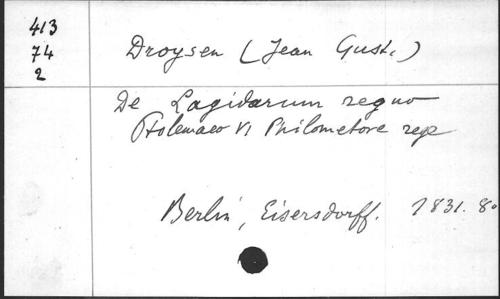 413
74
2
Droysen (Jean Gust.)
De Lagidarum regno
Ptolemaeo VI Philometore rege
Berlin, Eisersdorff. 1831. 8o